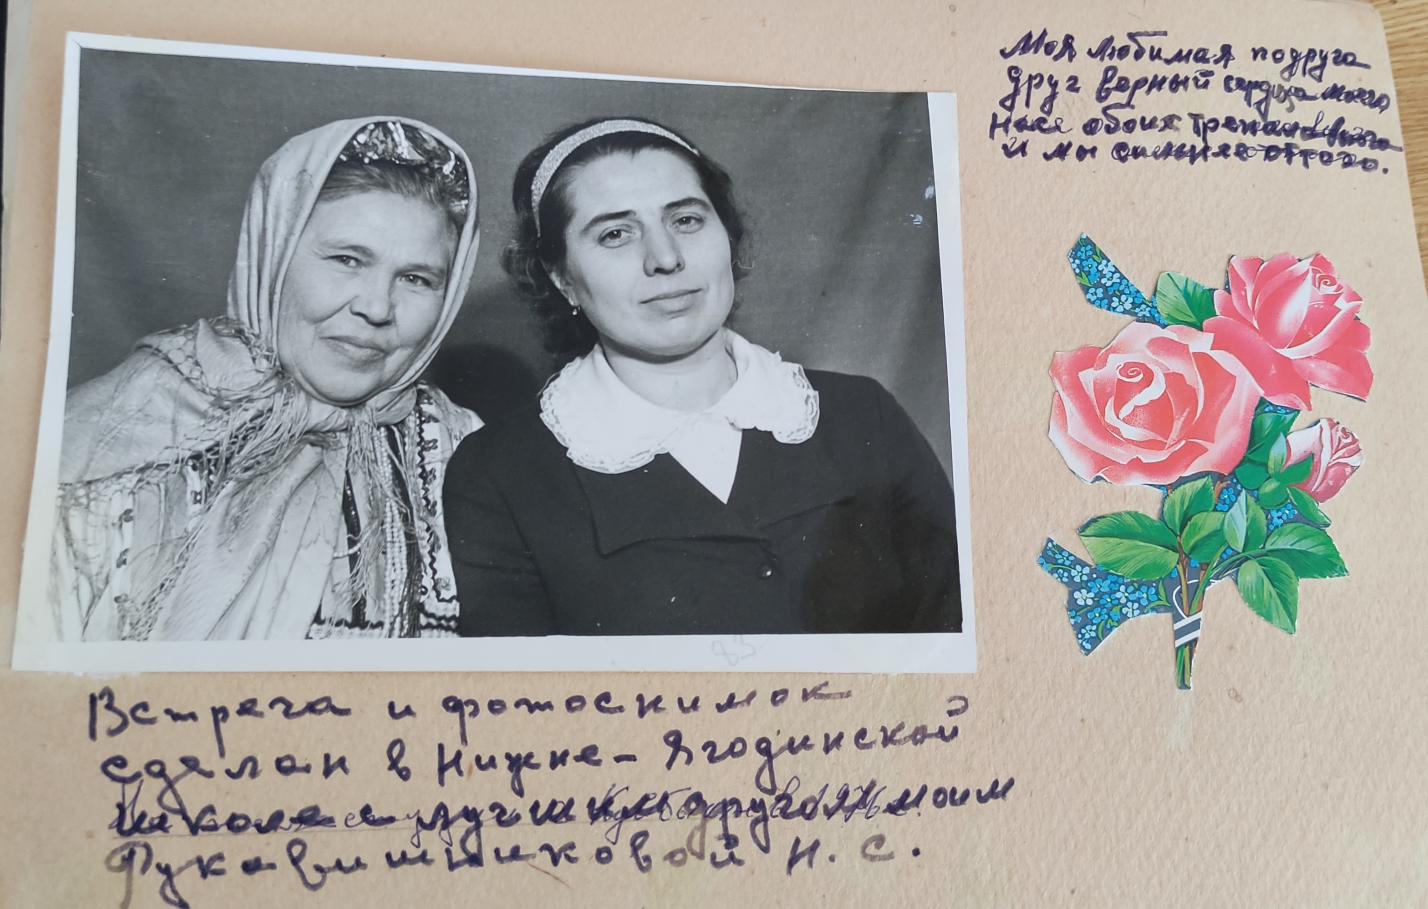 Моя любимая подруга
Друг верный сердца моего,
нас обоих
И мы сильнее оттого.
83
Встреча и фотоснимок
сделан в Нижне-Ягодинской
школе с лучшим другом моим
Рукавишниковой Н. С.